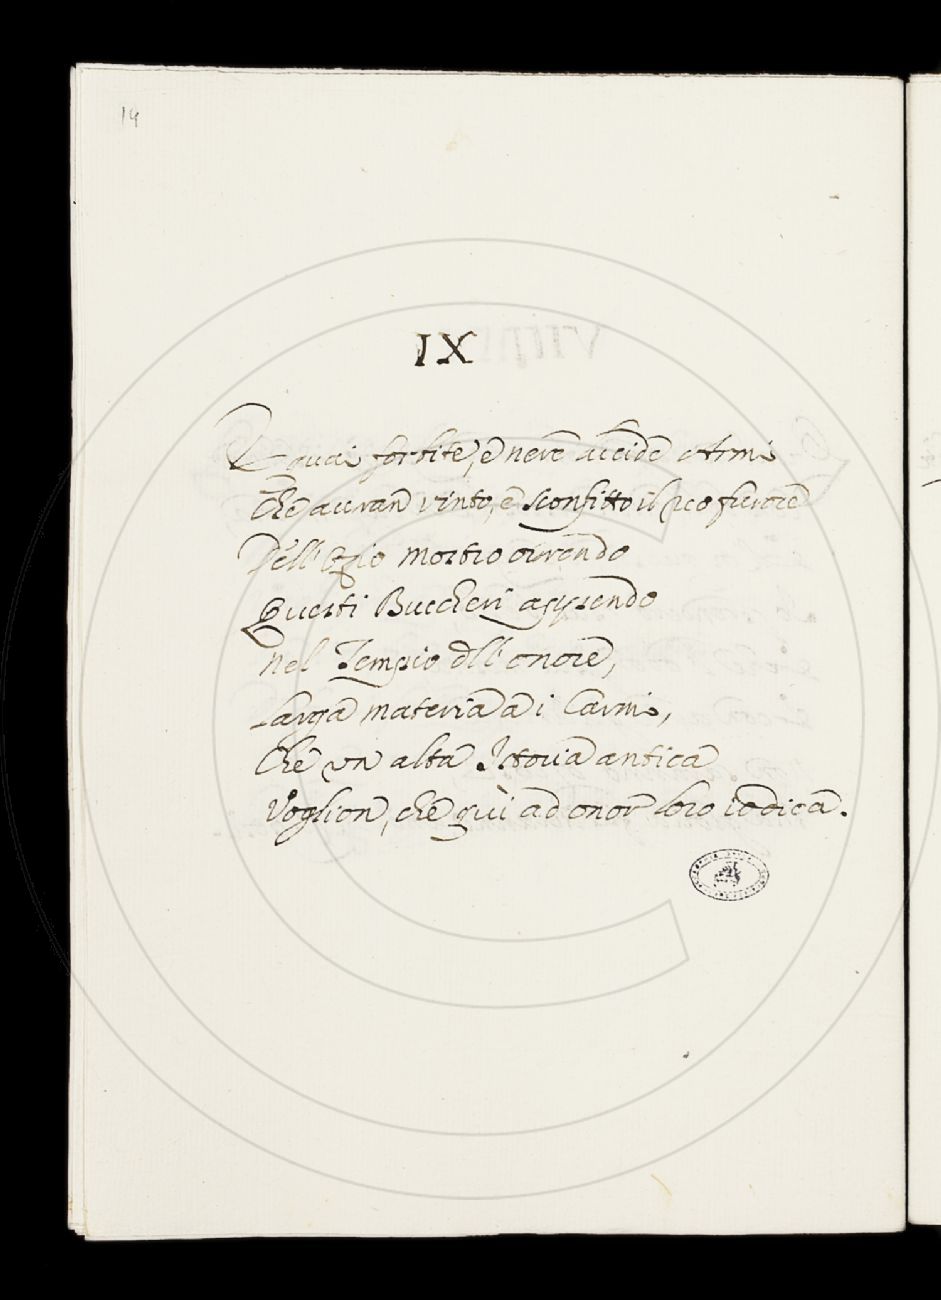 14
IX
E quai forbite, e nere accide Armi
Che avran vinto, e sconfitto il reo furore
Dell' Ozio morbo orrendo
Questi Buccheri appendo
nel Tempio dll' onore,
Larga materia a i Carmi,
Che un alta Istoria antica
Voglion, che quì ad onor loro io dica.